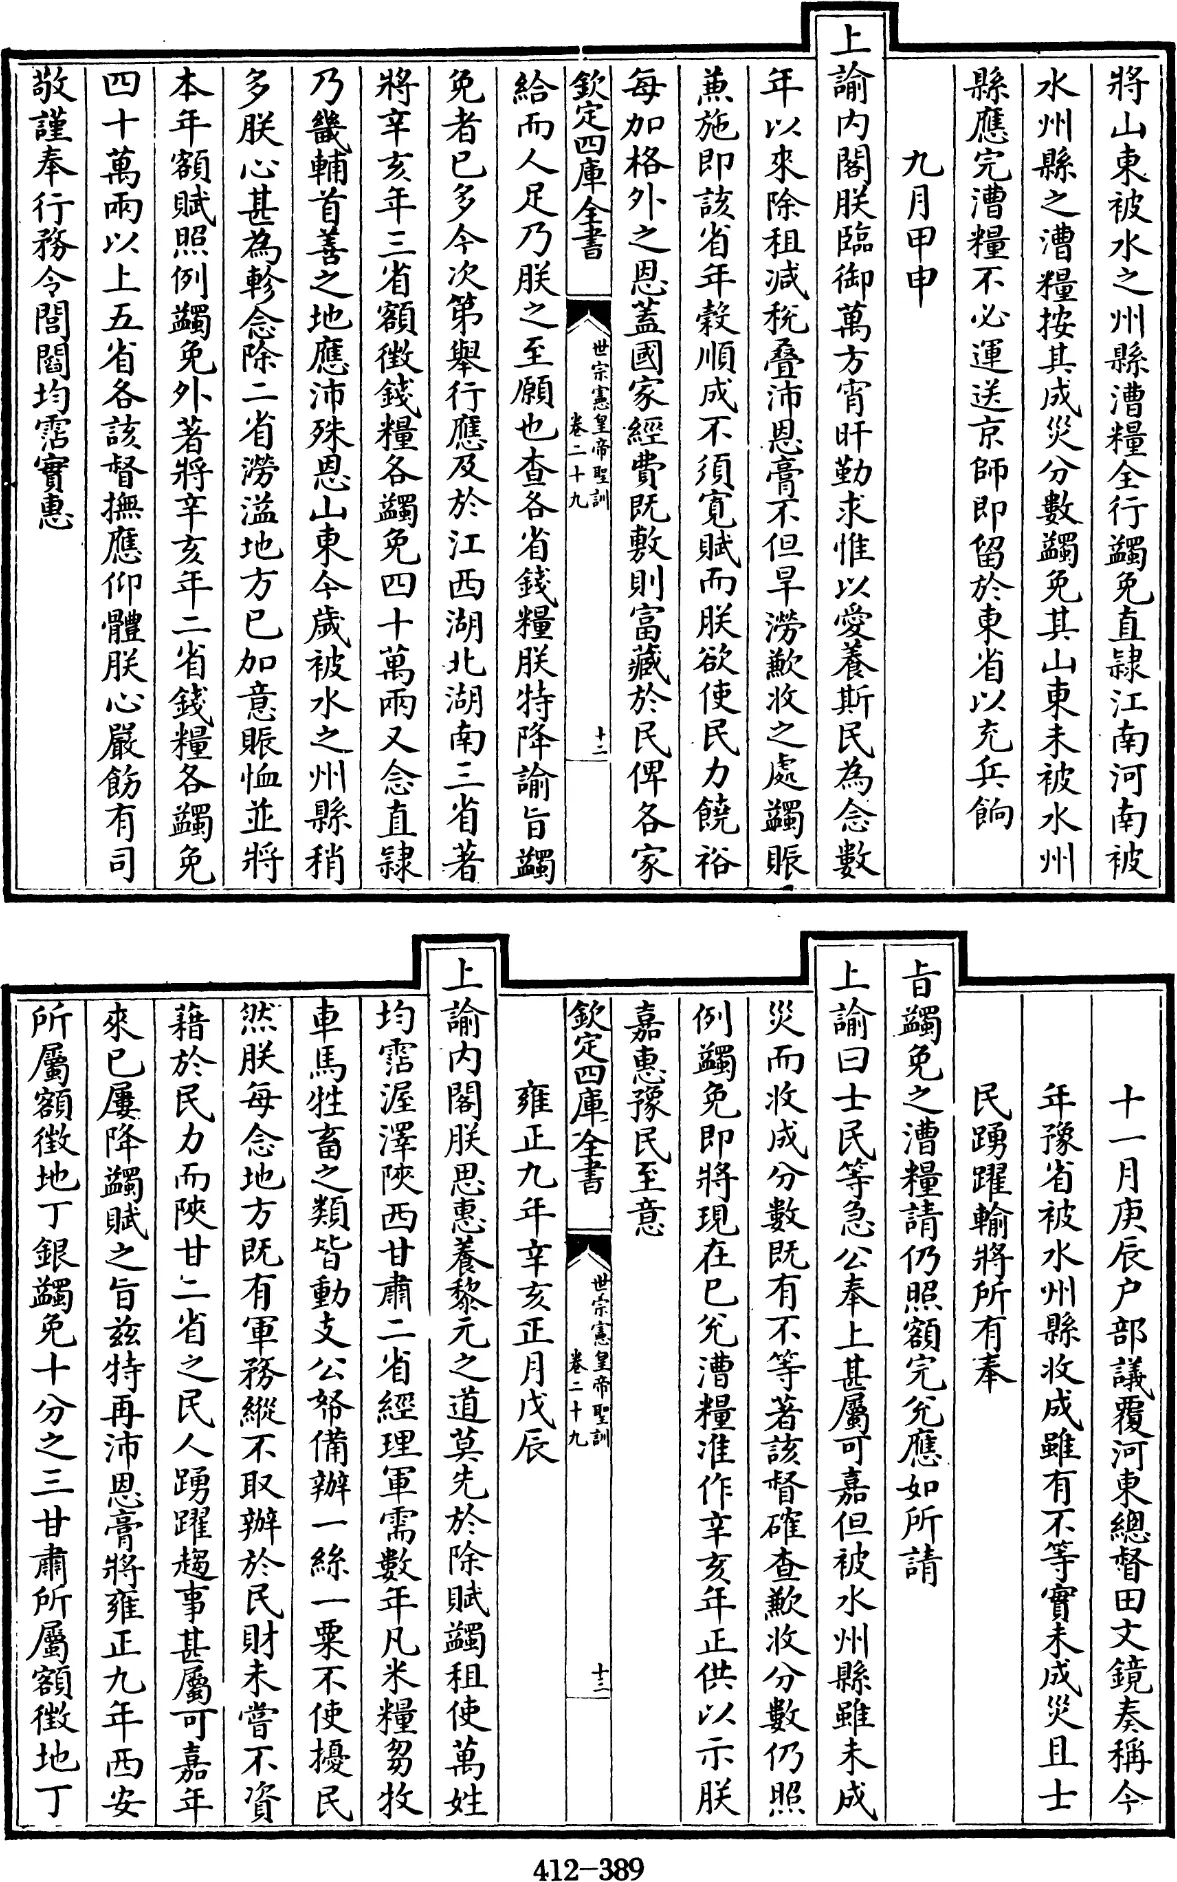 將山東被水之州縣漕糧全行蠲免直隸江南河南被
水州縣之漕糧按其成災分數蠲免其山東未被水州
縣應完漕糧不必運送京師即留於東省以充兵餉
九月甲申
上諭内閣朕臨御萬方宵旰勤求惟以愛養斯民為念數
年以來除租減稅叠沛恩膏不但旱澇歉收之處蠲賑
兼施即該省年榖順成不須寛賦而朕欲使民力饒裕
每加格外之恩蓋國家經費既敷則富藏於民俾各家
欽定四庫全書
世宗憲皇帝聖訓
卷二十九
十二
給而人足乃朕之至願也查各省錢糧朕特降諭旨蠲
免者已多今次第舉行應及於江西湖北湖南三省著
將辛亥年三省額徵錢糧各蠲免四十萬兩又念直隸
乃畿輔首善之地應沛殊恩山東今歲被水之州縣稍
多朕心甚為軫念除二省澇溢地方已加意賑恤並將
本年額賦照例蠲免外著將辛亥年二省錢糧各蠲免
四十萬兩以上五省各該督撫應仰體朕心嚴飭有司
敬謹奉行務令閭閻均霑實惠
十一月庚辰户部議覆河東總督田文鏡奏稱今
年豫省被水州縣收成雖有不等實未成災且士
民踴躍輸將所有奉
旨蠲免之漕糧請仍照額完兊應如所請
上諭曰士民等急公奉上甚屬可嘉但被水州縣雖未成
災而收成分數既有不等著該督確查歉收分數仍照
例蠲免即將現在已兊漕糧准作辛亥年正供以示朕
嘉惠豫民至意
欽定四庫全書
世宗憲皇帝聖訓
卷二十九
十三
雍正九年辛亥正月戊辰
上諭内閣朕思惠養黎元之道莫先於除賦蠲租使萬姓
均霑渥澤陜西甘肅二省經理軍需數年凡米糧芻牧
車馬牲畜之類皆動支公帑備辦一絲一粟不使擾民
然朕每念地方既有軍務縱不取辦於民財未嘗不資
藉於民力而陜甘二省之民人踴躍趨事甚屬可嘉年
來已屢降蠲賦之旨兹特再沛恩膏將雍正九年西安
所屬額徵地丁銀蠲免十分之三甘肅所屬額徵地丁
412-389